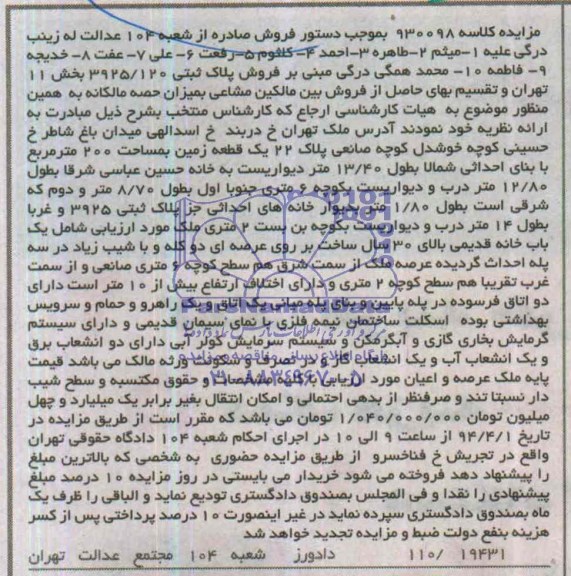 مزایده کلاسه ۹۳۰۰۹۸ بموجب دستور فروش صادره از شعبه ۱۰۴ عدالت له زینب
درگی علیه ۱-میثم ۲-طاهره ۳-احمد ۴- کلثوم ۵-رفعت ۶-علی ۷-عفت ۸- خدیجه
۹- فاطمه ۱۰- محمد همگی درگی مبنی بر فروش پلاک ثبتی ۳۹۲۵/۱۲۰ بخش ۱۱
تهران و تقسیم بهای حاصل از فروش بین مالکین مشاعی بمیزان حصه مالکانه به همین
منظور موضوع به هیات کارشناسی ارجاع که کارشناس منتخب بشرح ذیل مبادرت به
ارائه نظریه خود نمودند آدرس ملک تهران خ دربند خ اسدالهی میدان باغ شاطر خ
حسینی کوچه خوشدل کوچه صانعی پلاک ۲۲ یک قطعه زمین بمساحت ۲۰۰ مترمربع
با بنای احداثی شمالا بطول ۱۳/۴۰ متر دیواریست به خانه حسین عباسی شرقا بطول
۱۲/۸۰ متر درب و دیواریست بکوچه ۶ متری جنوبا اول بطول ۸/۷۰ متر و دوم که
شرقی است بطول ۱/۸۰ متر بدیوار خانه های احداثی جز پلاک ثبتی ۳۹۲۵ و غربا
بطول ۱۴ متر درب و دیواریست بکوچه بن بست ۲ متری ملک مورد ارزیابی شامل یک
باب خانه قدیمی بالای ۳۰ سال ساخت بر روی عرصه ای دو کله و با شیب زیاد در سه
پله احداث گردیده عرصه ملک از سمت شرق هم سطح کوچه ۶ متری صانعی و از سمت
غرب تقریبا هم سطح کوچه ۲ متری و دارای اختلاف ارتفاع بیش از ۱۰ متر است دارای
دو اتاق فرسوده در پله پایین و بنای پله میانی یک اتاق و یک راهرو و حمام و سرویس
بهداشتی بوده اسکلت ساختمان نیمه فلزی با نمای سیمان قدیمی و دارای سیستم
گرمایش بخاری گازی و آبگرمکن و سیستم سرمایش کولر آبی دارای دو انشعاب برق
و یک انشعاب آب و یک انشعاب گاز و در تصرف و سکونت ورثه مالک می باشد قیمت
پایه ملک عرصه و اعیان مورد ارزیابی با کلیه مشخصات و حقوق مکتسبه و سطح شیب
دار نسبتا تند و صرفنظر از بدهی احتمالی و امکان انتقال بغیر برابر یک میلیارد و چهل
میلیون تومان ۱/۰۴۰/۰۰۰/۰۰۰ تومان می باشد که مقرر است از طریق مزایده در
تاریخ ۹۴/۴/۱ از ساعت ۹ الی ۱۰ در اجرای احکام شعبه ۱۰۴ دادگاه حقوقی تهران
واقع در تجریش خ فناخسرو از طریق مزایده حضوری به شخصی که بالاترین مبلغ
را پیشنهاد دهد فروخته می شود خریدار می بایستی در روز مزایده ۱۰ درصد مبلغ
پیشنهادی را نقدا و فی المجلس بصندوق دادگستری تودیع نماید و الباقی را ظرف یک
ماه بصندوق دادگستری سپرده نماید در غیر اینصورت ۱۰ درصد پرداختی پس از کسر
هزینه بنفع دولت ضبط و مزایده تجدید خواهد شد
۱۹۴۳۱ /۱۱۰ دادورز شعبه ۱۰۴ مجتمع عدالت تهران